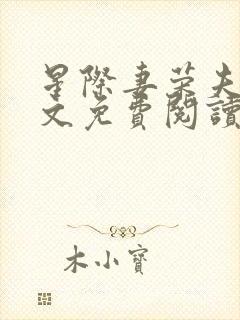 星際妻榮夫
文免費閱讀
木小寶